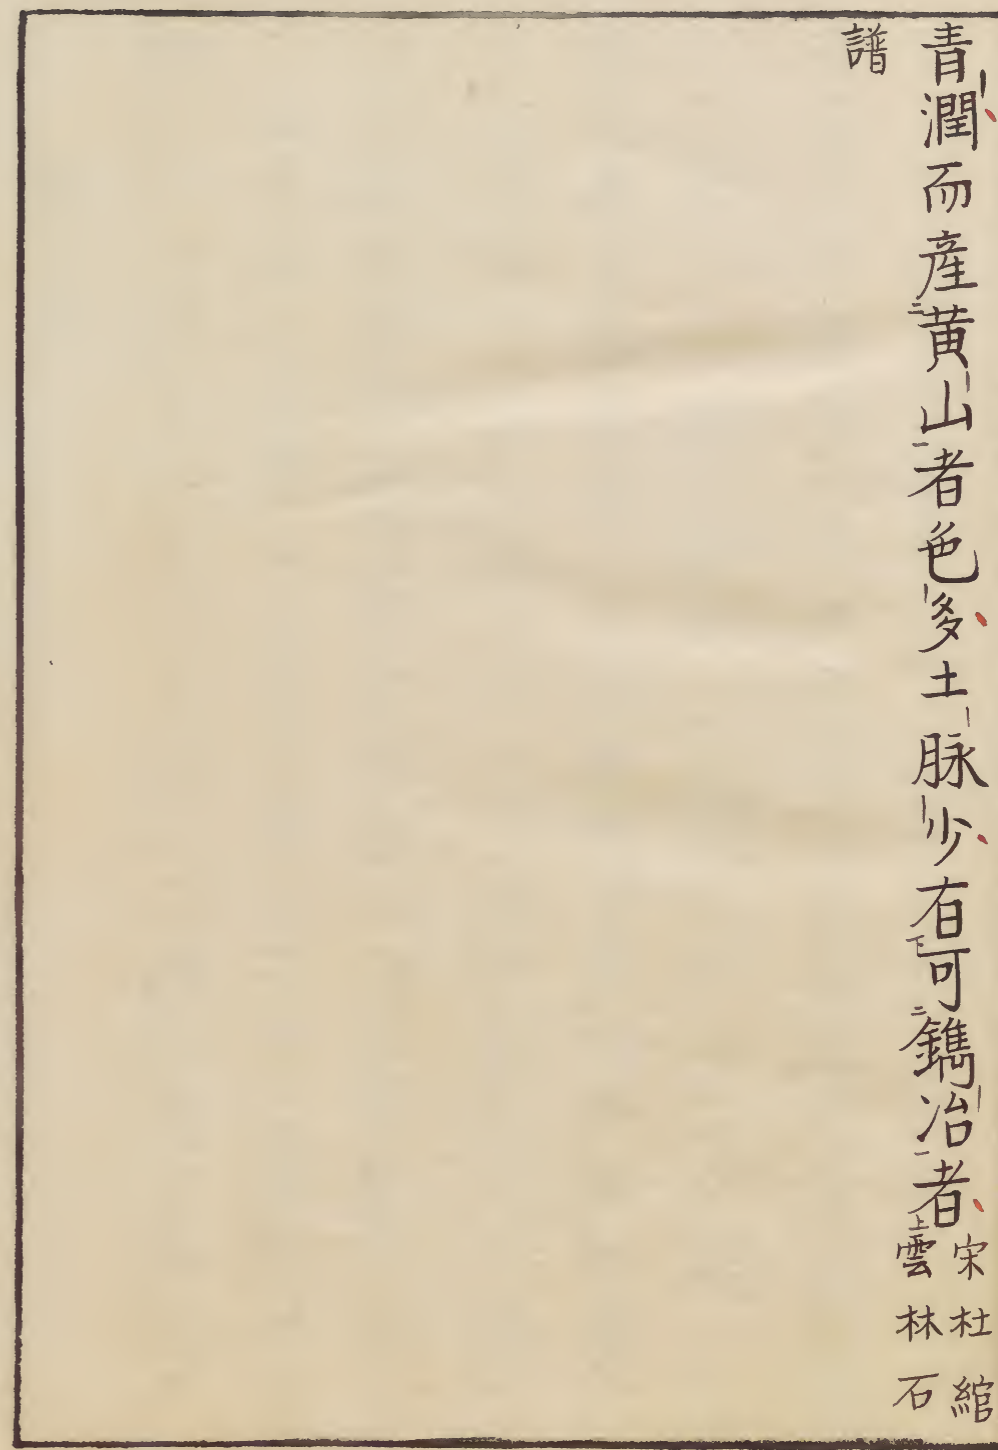 青潤而産黄山者色多土脉少有可鐫冶者宋杜綰雲林石
譜